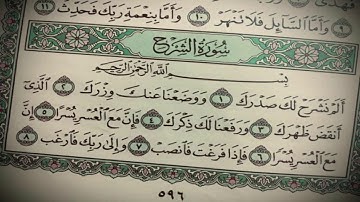 فَهَدَىٰ
٩ وَأَمَّا ٱلسَّآئِلَ فَلَا تَنْهَرْ ١٠ وَأَمَّا بِنِعْمَةِ رَبِّكَ فَحَدِّثْ ١١
سُورَةُ الشَّرْحِ
بِسْمِ ٱللَّهِ ٱلرَّحْمَٰنِ ٱلرَّحِيمِ
أَلَمْ نَشْرَحْ لَكَ صَدْرَكَ ١ وَوَضَعْنَا عَنكَ وِزْرَكَ ٢ ٱلَّذِىٓ
أَنقَضَ ظَهْرَكَ ٣ وَرَفَعْنَا لَكَ ذِكْرَكَ ٤ فَإِنَّ مَعَ ٱلْعُسْرِ يُسْرًا ٥ إِنَّ
مَعَ ٱلْعُسْرِ يُسْرًا ٦ فَإِذَا فَرَغْتَ فَٱنصَبْ ٧ وَإِلَىٰ رَبِّكَ فَٱرْغَب ٨
٥٩٦